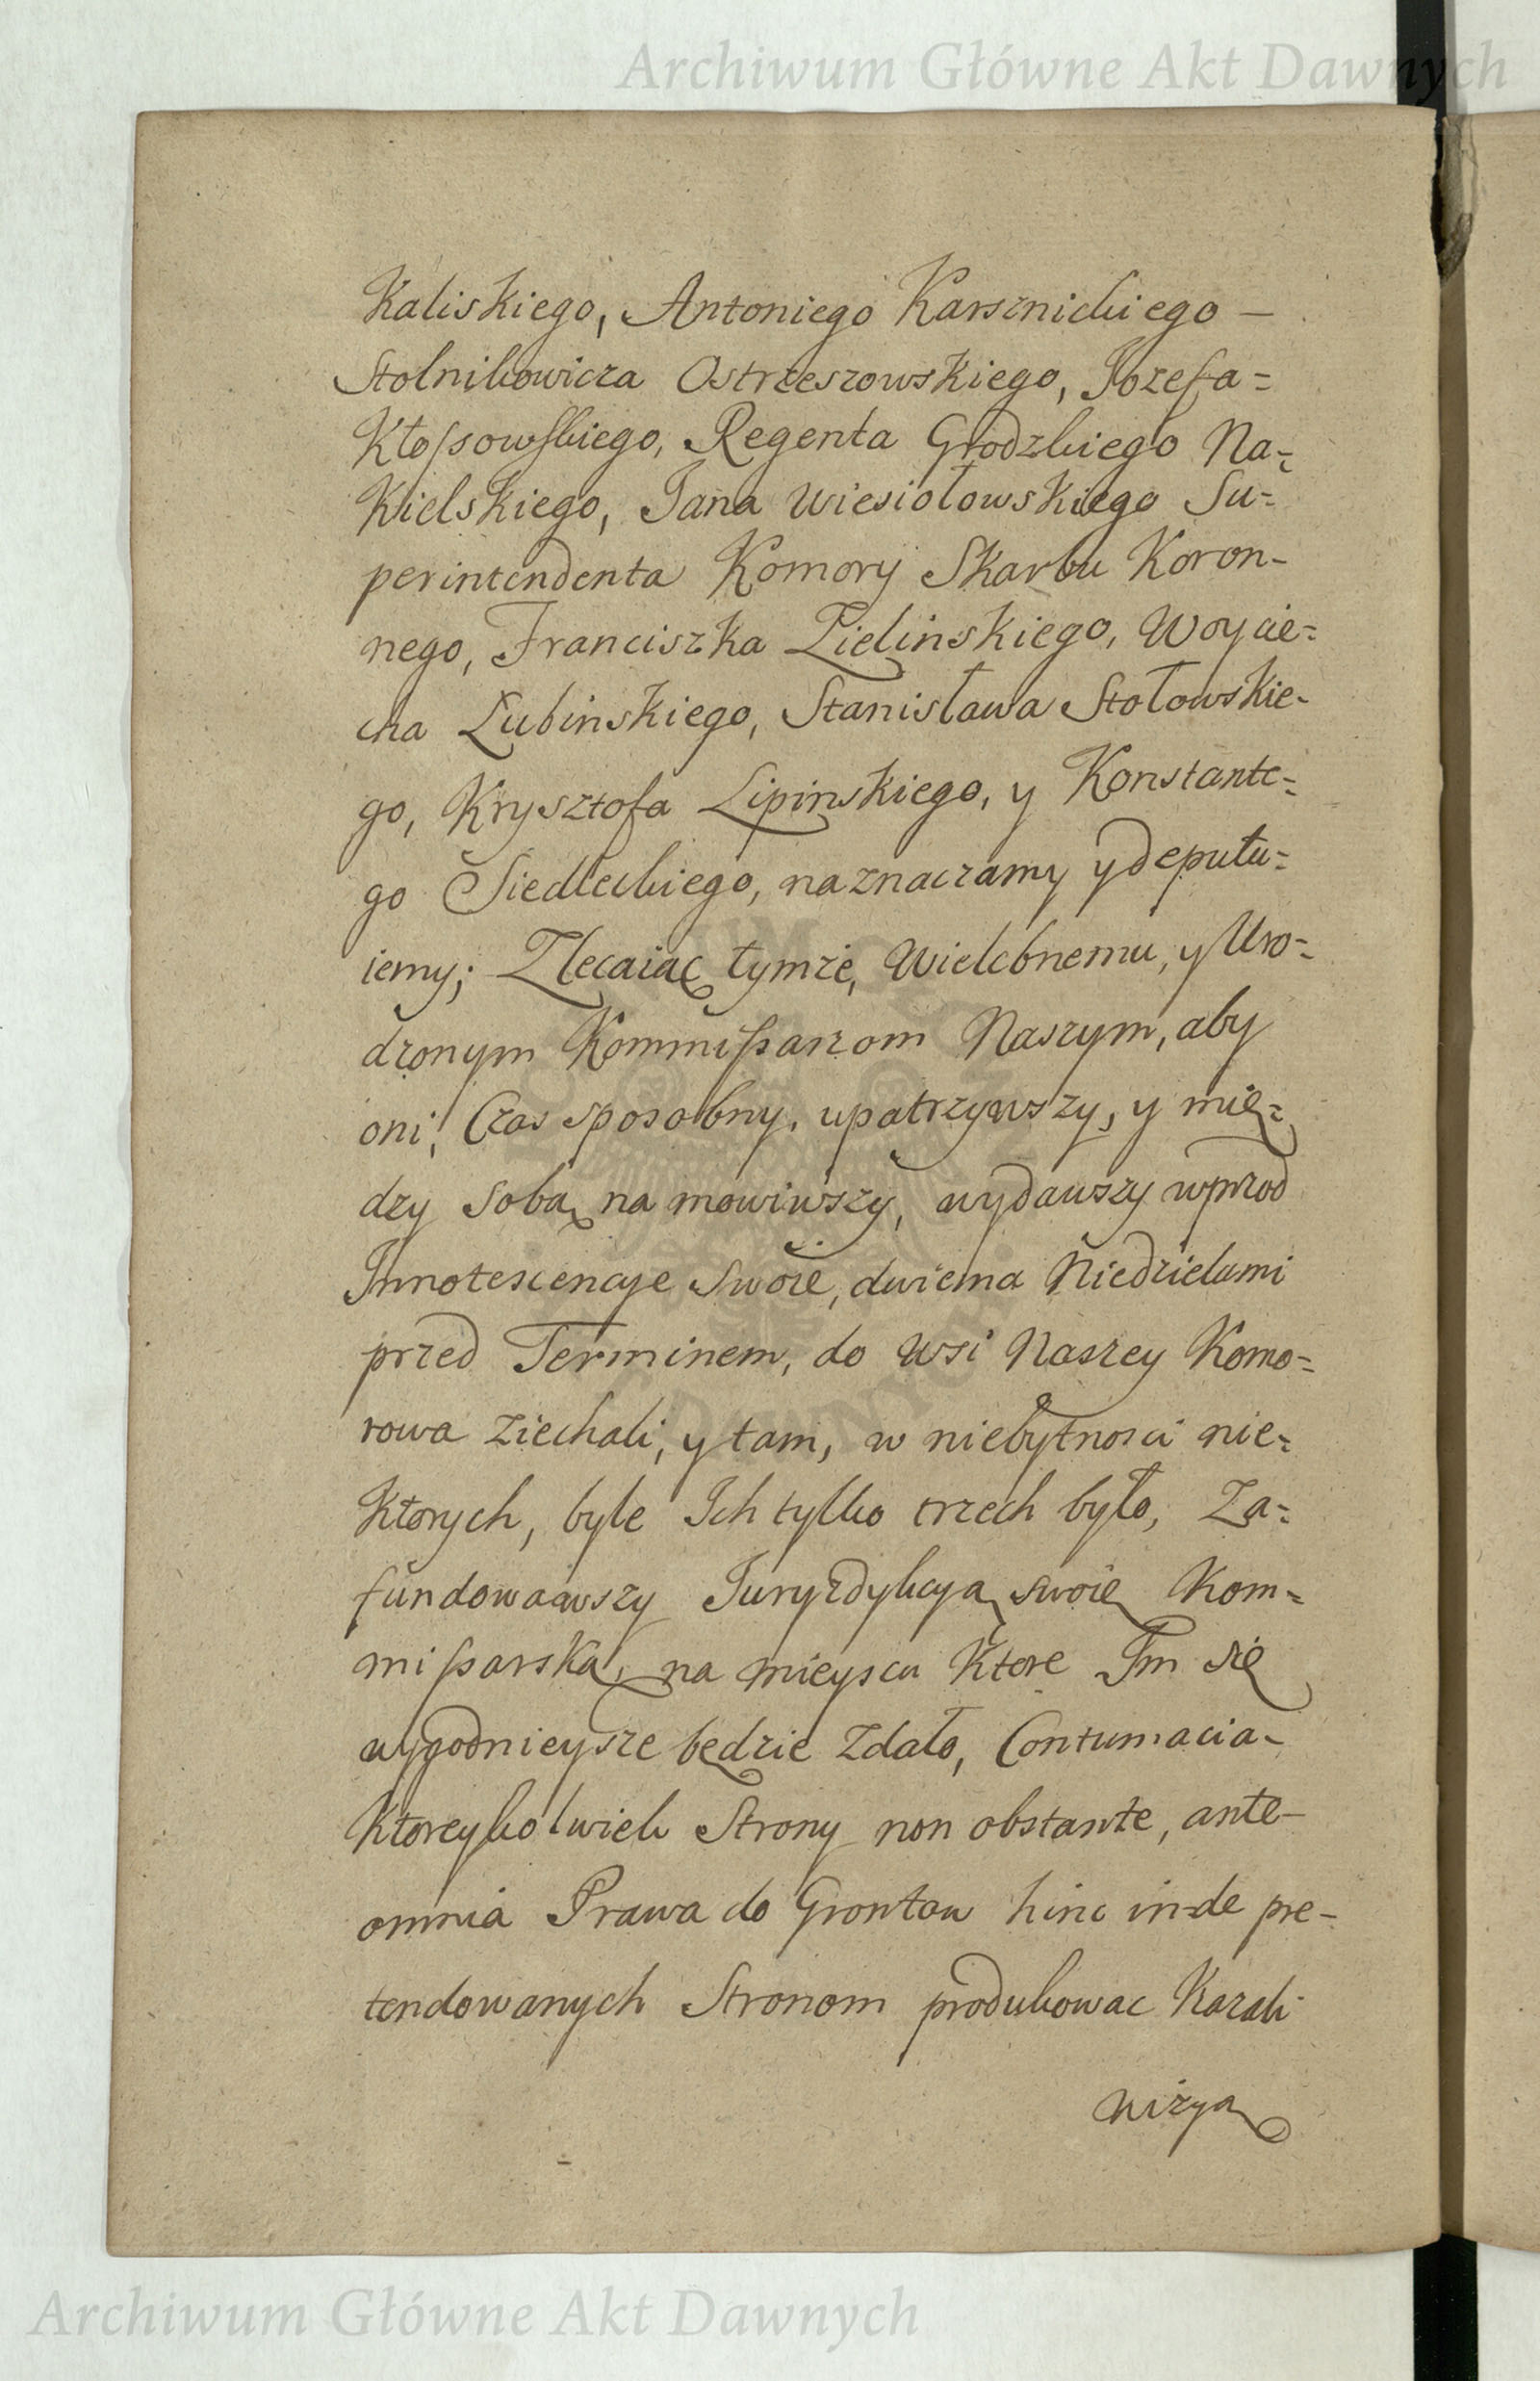 Archiwum Główne Akt Dawnych
Kaliskiego, Antoniego Karsznickiego —
Stolnikowicza Ostrzeszowskiego, Jozefa=
Kłossowskiego, Regenta Grodzkiego Na=
Kielskiego, Jana Wiesiołowskiego Su=
perintendenta Komory Skarbu Koron-
nego, Franciszka Zielinskiego, Woycie=
cha Lubinskiego, Stanisława Stołowskie-
go, Krysztofa Lipinskiego, y Konstante=
go Siedleckiego, naznaczamy y deputu=
iemy; Zlecaiąc tymże, Wielebnemu, y Uro=
dzonym Kommissarzom Naszym, aby
oni, Czas sposobny, upatrzywszy, y mię=
dzy sobą na mowiwszy, wydawszy wprzod
Innotescencye swoie, dwiema Niedzielami
przed Terminem, do Wsi Naszey Komo=
rowa ziechali, y tam, w niebytnosci nie=
Ktorych, byle Ich tylko trzech było, Za=
fundowawszy Juryzdykcyą swoię Kom=
missarską, na mieyscu Ktore Im się
wygodnieysze będzie Zdało, Contumacia-
Ktoreykolwiek Strony non obstante, ante-
omnia Prawa do Grontow hinc inde pre-
tendowanych Stronom produkowac Kazali
wizyą
Archiwum Główne Akt Dawnych